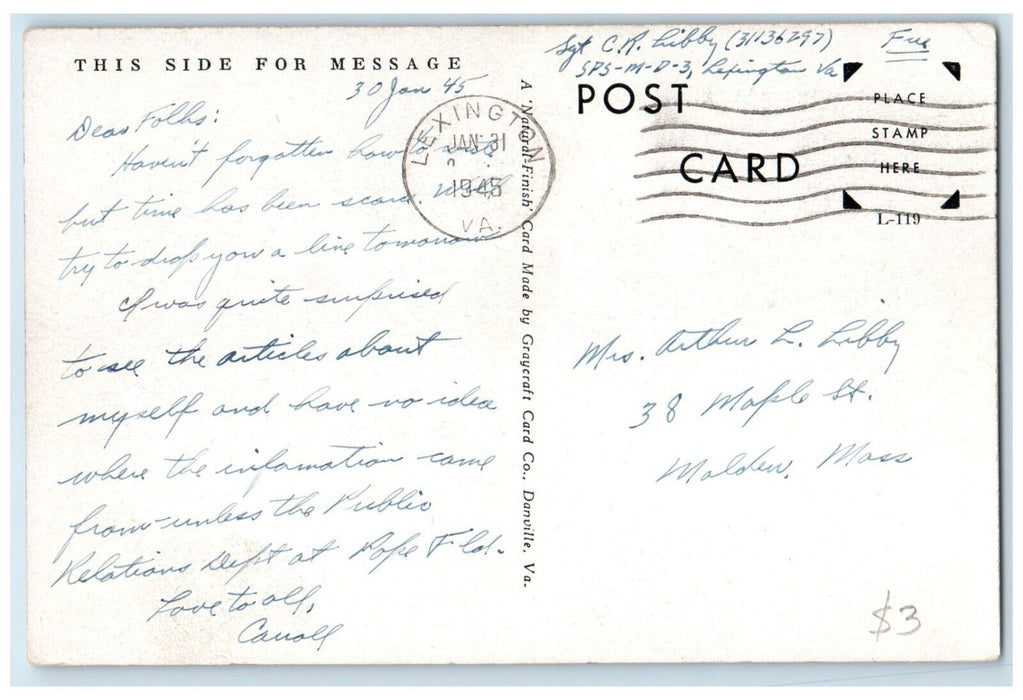 THIS SIDE FOR MESSAGE
30 Jan 45
Dear Folks:
Haven't forgotten how to write
but time has been scarce. Will
try to drop you a line tomorrow
I was quite surprised
to see the articles about
myself and have no idea
where the information came
from - unless the Public
Relations Dept at Pope Fld.
Love to all,
Carroll
LEXINGTON
JAN 31
1945
VA.
A 'Natural-Finish' Card Made by Graycraft Card Co., Danville, Va.
Sgt C. R. Libby (31136297)
SPS-M-D-3, Lexington Va
Free
POST
CARD
PLACE
STAMP
HERE
L-119
Mrs. Arthur L. Libby
38 Maple St.
Malden, Mass
$3